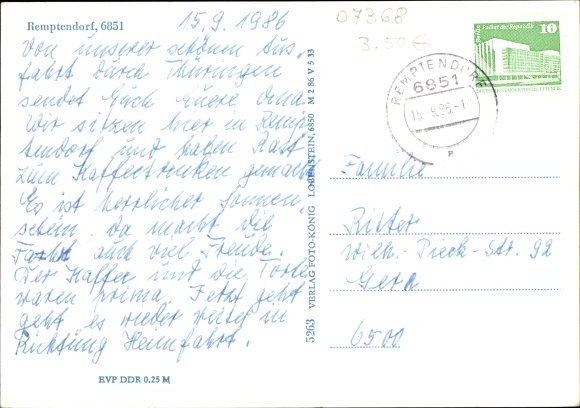 Remptendorf, 6851
15.9.1986
07368
3.50 €
Von unserer schönen Aus-
fahrt durch Thüringen
sendet Euch Euere Oma.
Wir sitzen hier in Remp
tendorf und haben Rast
zum Kaffeetrinken gemacht
Es ist herrlicher Sonnen-
schein. Da macht die
Fahrt auch viel Freude.
Der Kaffee und die Torte
waren prima. Jetzt geht
geht es wieder weiter in
Richtung Heimfahrt.
EVP DDR 0,25 M
5263 VERLAG FOTO-KÖNIG LOBENSTEIN, 6850 M 2 86 V 5 33
Berlin, Palast der Republik 10
REMPTENDORF
6851
15.9.86-1
Familie
Ritter
Wilh.-Pieck-Str. 92
Gera
6500